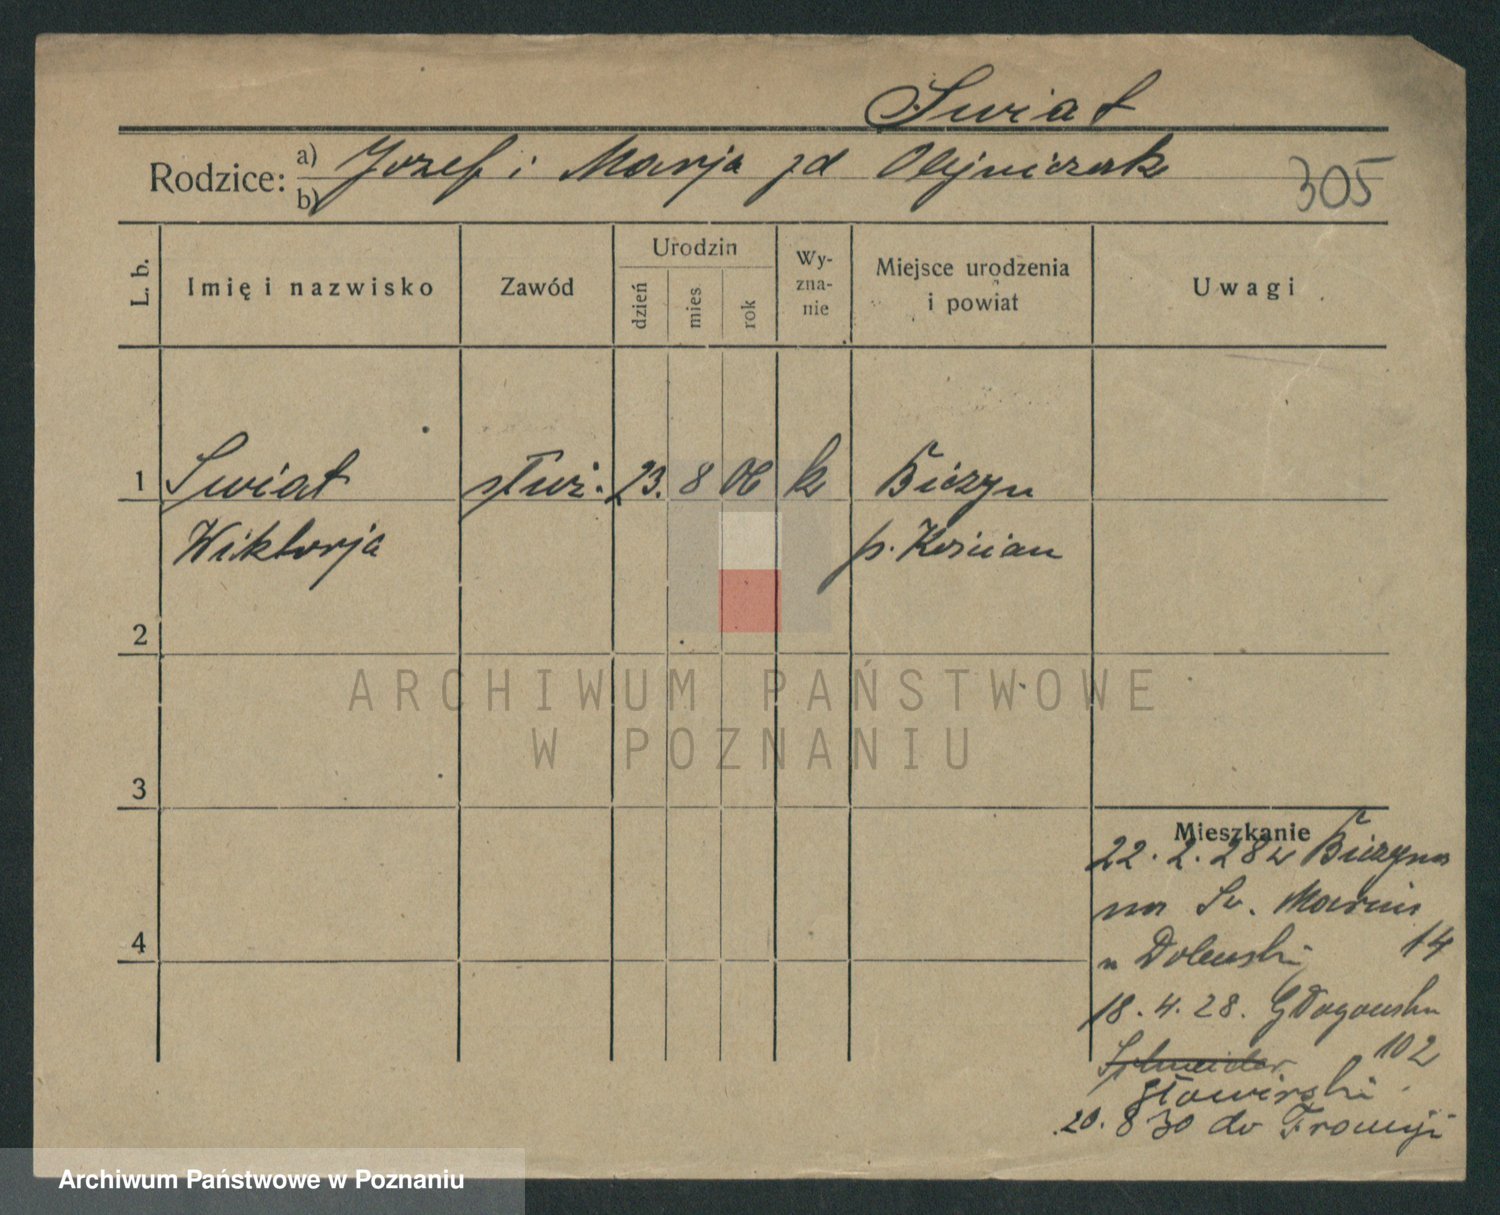 Swiat
Rodzice: a) Jozef i Marja zd Olejniczak
b)
305
L. b.
Imię i nazwisko
Zawód
Urodzin
dzień
mies
rok
Wy-
zna-
nie
Miejsce urodzenia
i powiat
Uwagi
1 Swiat służ. 23. 8 06 k
Wiktorja p. Kościan
2
3
4
ARCHIWUM PAŃSTWOWE
W POZNANIU
Mieszkanie
22. 2. 28 z
na Św. Marcin
u 14
18. 4. 28. Głogowska
Schneider 102
20. 8 30 do Francji
Archiwum Państwowe w Poznaniu